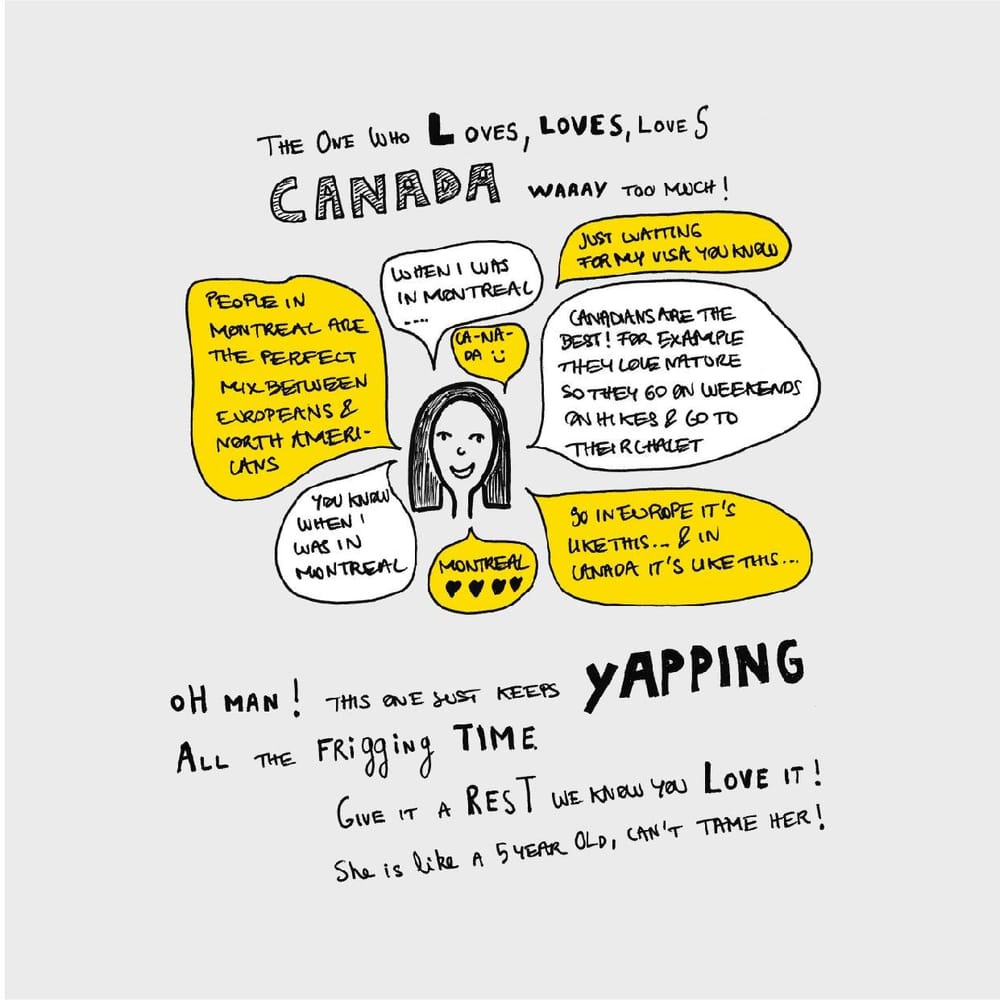 THE ONE WHO LOVES, LOVES, LOVES
CANADA WAAAY TOO MUCH!
JUST WAITING
FOR MY VISA YOU KNOW
WHEN I WAS
IN MONTREAL
....
CA-NA-
DA :)
PEOPLE IN
MONTREAL ARE
THE PERFECT
MIX BETWEEN
EUROPEANS &
NORTH AMERI-
CANS
CANADIANS ARE THE
BEST! FOR EXAMPLE
THEY LOVE NATURE
SO THEY GO ON WEEKENDS
ON HIKES & GO TO
THEIR CHALET
YOU KNOW
WHEN I
WAS IN
MONTREAL
MONTREAL
♥♥♥♥
SO IN EUROPE IT'S
LIKE THIS... & IN
CANADA IT'S LIKE THIS...
OH MAN! THIS ONE JUST KEEPS YAPPING
ALL THE FRiggiNg TIME.
GIVE IT A REST WE KNOW YOU LOVE IT!
She is like A 5 YEAR OLD, CAN'T TAME HER!